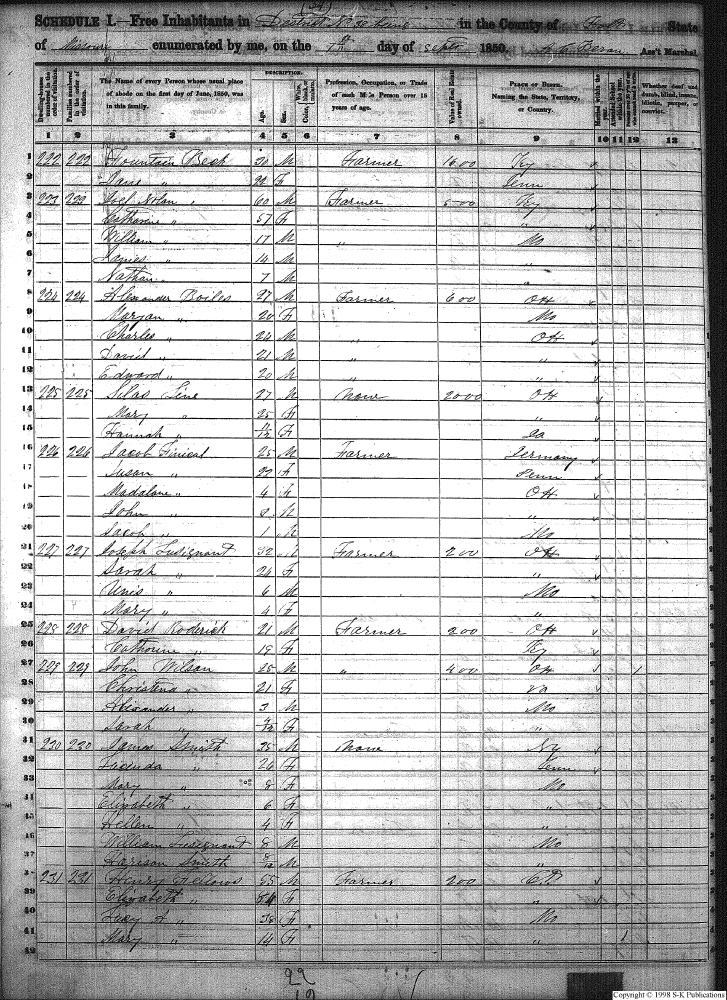 SCHEDULE I.—Free Inhabitants in District in the County of Holt State
of Missouri enumerated by me, on the 7th day of Septr 1850. Ass't Marshal
DESCRIPTION.
Dwelling-houses numbered in the order of visitation.
Families numbered in the order of visitation.
The Name of every Person whose usual place of abode on the first day of June, 1850, was in this family.
Age.
Sex.
Profession, Occupation, or Trade of each Male Person over 15 years of age.
Value of Real Estate owned.
PLACE OF BIRTH. Naming the State, Territory, or Country.
Married within the year.
Whether deaf and dumb, blind, insane, idiotic, pauper, or convict.
1 2 3 4 5 6 7 8 9 10 11 12 13
1 222 222 Fountain Beck 30 M Farmer 1600 Ky
2 Jane " 22 F Tenn
3 223 223 Joel Nolan 60 M Farmer 500 Ky
4 Catharine " 57 F "
5 William " 17 M " Mo
6 James " 14 M "
7 Nathan 7 M "
8 224 224 Alexander Boiles 27 M Farmer 600 OH
9 Maryan " 20 F Mo
10 Charles " 24 M " OH
11 David " 21 M " "
12 Edward " 20 M " "
13 225 225 Silas Line 27 M None 2000 OH
14 Mary " 25 F "
15 Hannah " F
16 226 226 Jacob Finical 25 M Farmer Germany
17 Susan " 22 F Penn
18 Madaline " 4 F OH
19 John " 2 M "
20 Jacob " 1 M Mo
21 227 227 Joseph Lusignant 32 M Farmer 200 OH
22 Sarah " 24 F "
23 Unis " 6 M Mo
24 Mary " 4 F "
25 228 228 David Roderick 21 M Farmer 200 OH
26 Catharine " 19 F Ky
27 229 229 John Wilson 28 M " 400 OH 1
28 Christena " 21 F
29 Alexander " 3 M Mo
30 Sarah " F "
31 230 230 James Smith 35 M None Ky
32 " 26 F Tenn
33 Mary " 8 F Mo
34 Elizabeth " 6 F "
35 Hellen " 4 F "
36 William Lusignant 8 M Mo
37 Harison Smith M "
38 231 231 Henry Fellows 55 M Farmer 200
39 Elizabeth " F "
40 Lucy A " F Mo
41 Mary " 14 F " 1
42
Copyright © 1998 S-K Publications